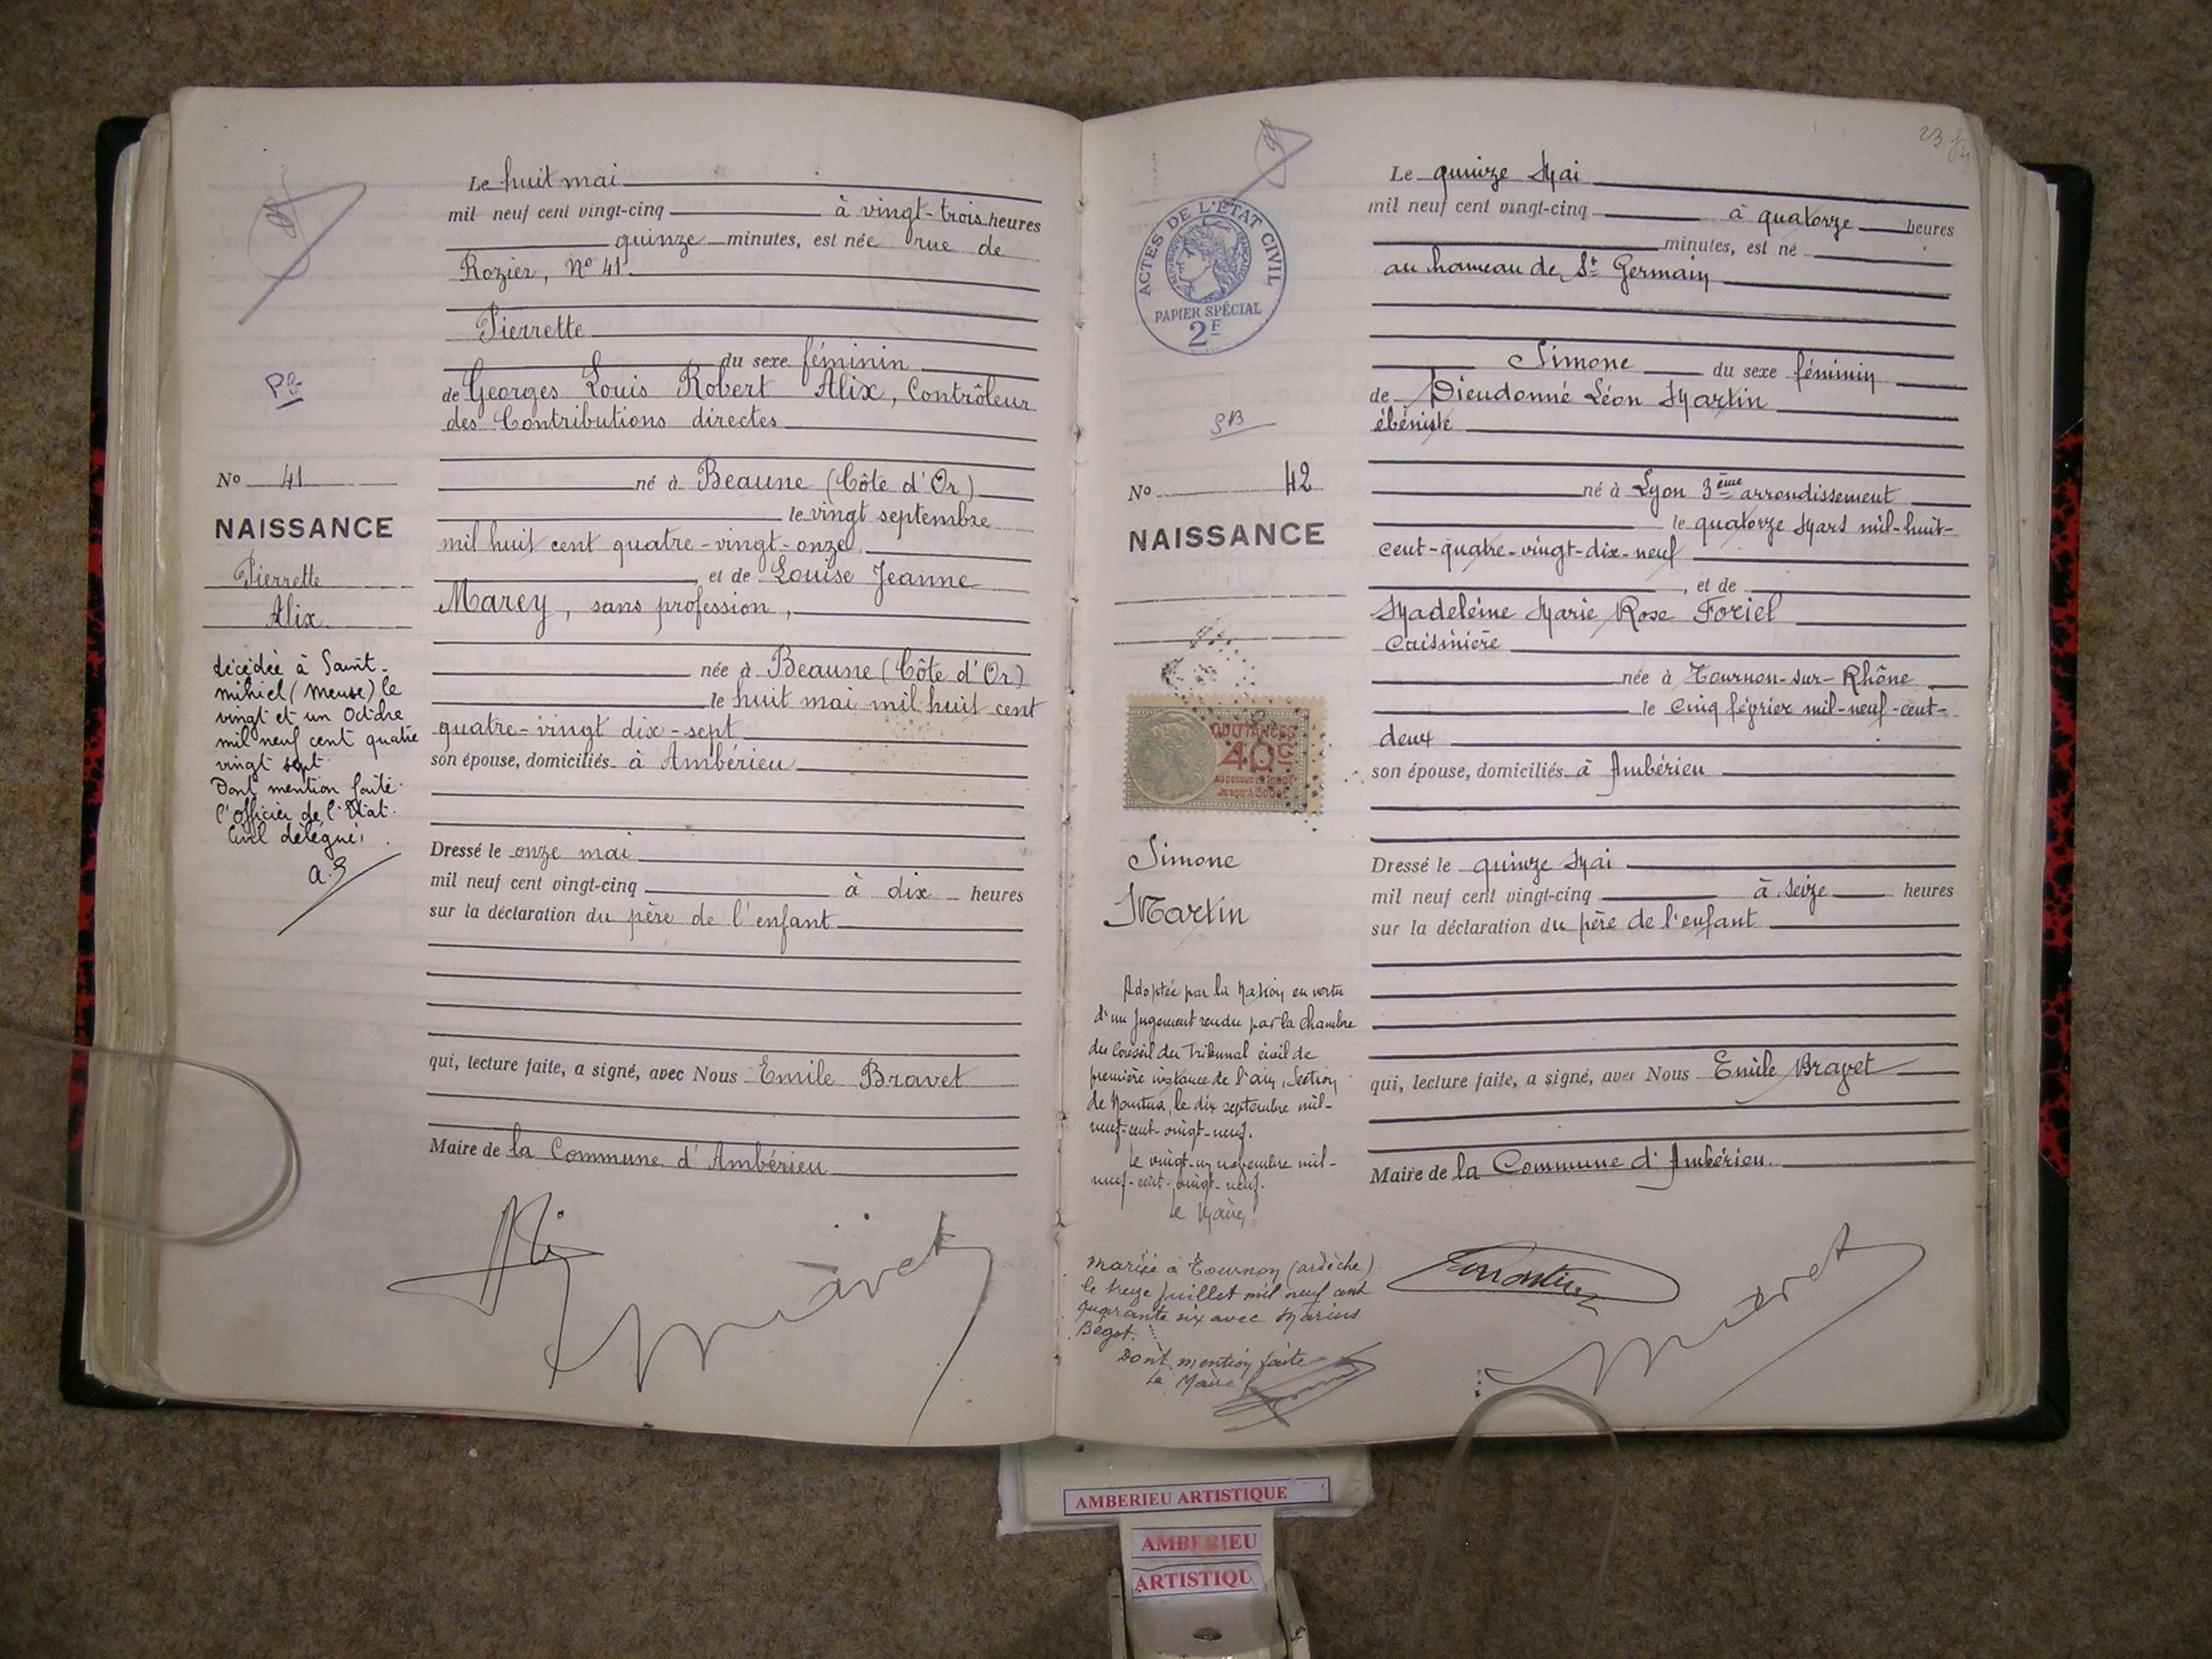 Le huit mai
mil neuf cent vingt-cinq à vingt-trois heures
quinze minutes, est née rue de
Rozier, No 41
Pierrette
du sexe féminin
de Georges Louis Robert Alix, Contrôleur
des Contributions directes
né à Beaune (Côte d'Or)
le vingt septembre
mil huit cent quatre-vingt-onze
, et de Louise Jeanne
Marey, sans profession,
née à Beaune (Côte d'Or)
le huit mai mil huit cent
quatre-vingt dix-sept
son épouse, domiciliés à Ambérieu
Dressé le onze mai
mil neuf cent vingt-cinq à dix heures
sur la déclaration du père de l'enfant
qui, lecture faite, a signé, avec Nous Emile Bravet
Maire de la Commune d'Ambérieu
PB
No 41
NAISSANCE
Pierrette
Alix
décédée à Saint-
mihiel (Meuse) le
vingt et un Octobre
mil neuf cent quatre
vingt sept
Dont mention faite
l'officier de l'Etat
Civil délégué,
Le quinze Mai
mil neuf cent vingt-cinq à quatorze heures
minutes, est né
au hameau de St Germain
Simone du sexe féminin
de Dieudonné Léon Martin
ébéniste
né à Lyon 3ème arrondissement
le quatorze Mars mil-huit-
cent-quatre-vingt-dix-neuf
, et de
Madeleine Marie Rose Foriel
Cuisinière
née à Tournon-sur-Rhône
le cinq février mil-neuf-cent-
deux
son épouse, domiciliés à Ambérieu
Dressé le quinze Mai
mil neuf cent vingt-cinq à seize heures
sur la déclaration du père de l'enfant
qui, lecture faite, a signé, avec Nous Emile Bravet
Maire de la Commune d'Ambérieu.
23
ACTES DE L'ÉTAT CIVIL
PAPIER SPÉCIAL
2F
SB
No 42
NAISSANCE
QUITTANCES
40c
Simone
Martin
Adoptée par la Nation en vertu
d'un Jugement rendu par la Chambre
du Conseil du Tribunal civil de
première instance de l'Ain, Section
de Nantua, le dix septembre mil-
neuf-cent-vingt-neuf.
Le vingt-un novembre mil-
neuf-cent-vingt-neuf.
Le Maire,
Mariée à Tournon (ardèche)
le treize juillet mil neuf cent
quarante six avec Marius
Bégot.
Dont mention faite
Le Maire
AMBERIEU ARTISTIQUE
AMBERIEU
ARTISTIQU